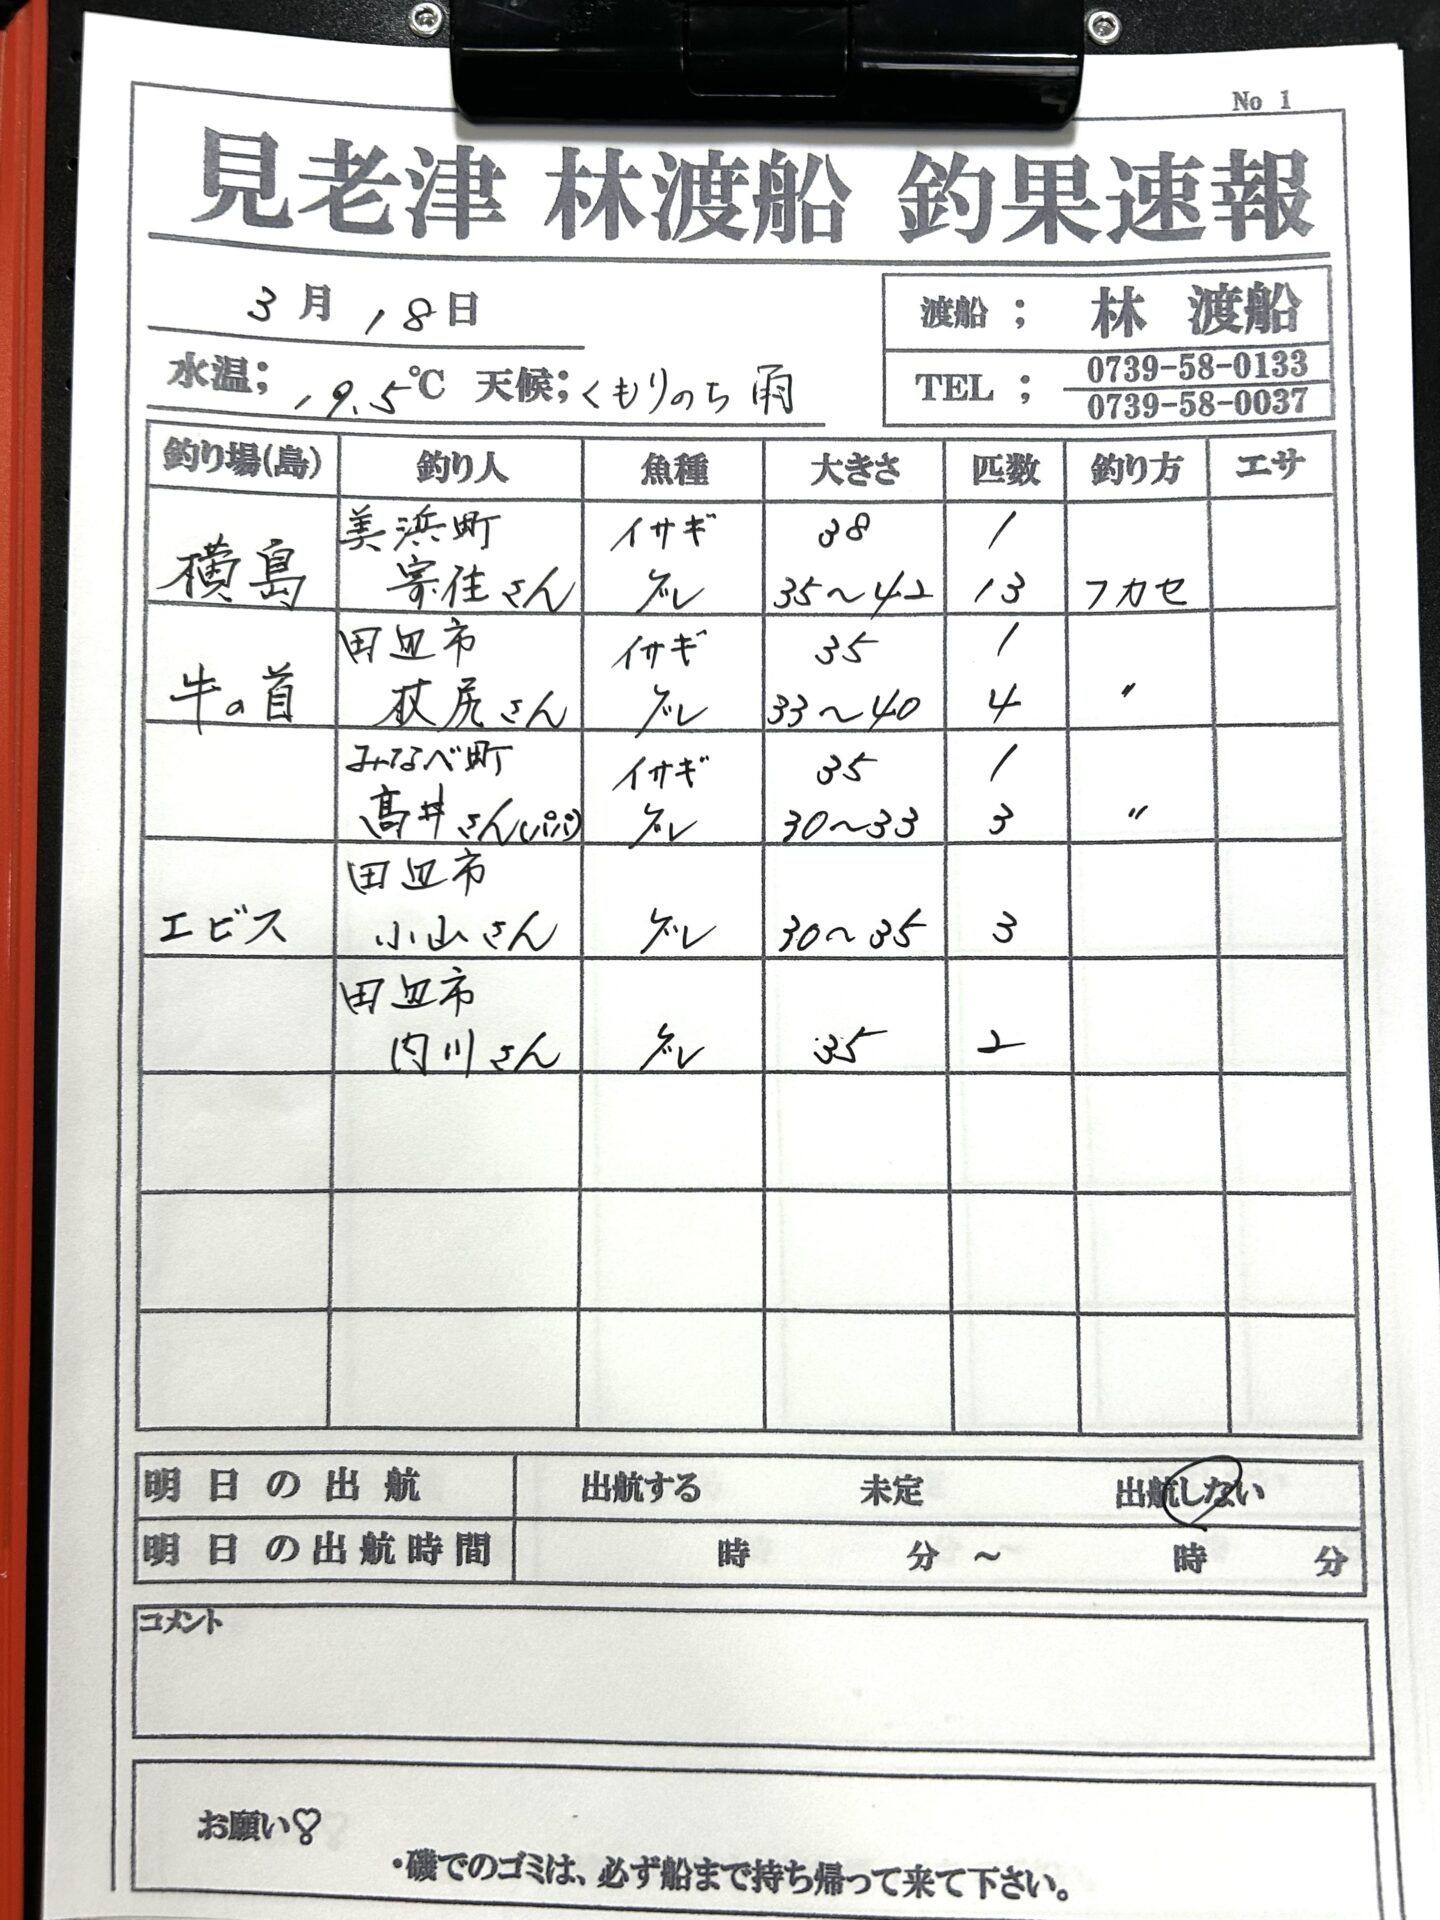 No 1
見老津 林渡船 釣果速報
3月18日
渡船 ; 林 渡船
水温; 19.5℃ 天候; くもりのち雨
TEL ; 0739-58-0133
0739-58-0037
釣り場(島) 釣り人 魚種 大きさ 匹数 釣り方 エサ
美浜町 イサギ 38 1
横島 寄住さん グレ 35～42 13 フカセ
田辺市 イサギ 35 1
牛の首 さん グレ 33～40 4 〃
みなべ町 イサギ 35 1
髙井さん(パパ) グレ 30～33 3 〃
田辺市
エビス 小山さん グレ 30～35 3
田辺市
内川さん グレ 35 2
明日の出航 出航する 未定 出航しない
明日の出航時間 時 分 ～ 時 分
コメント
お願い♡
・磯でのゴミは、必ず船まで持ち帰って来て下さい。